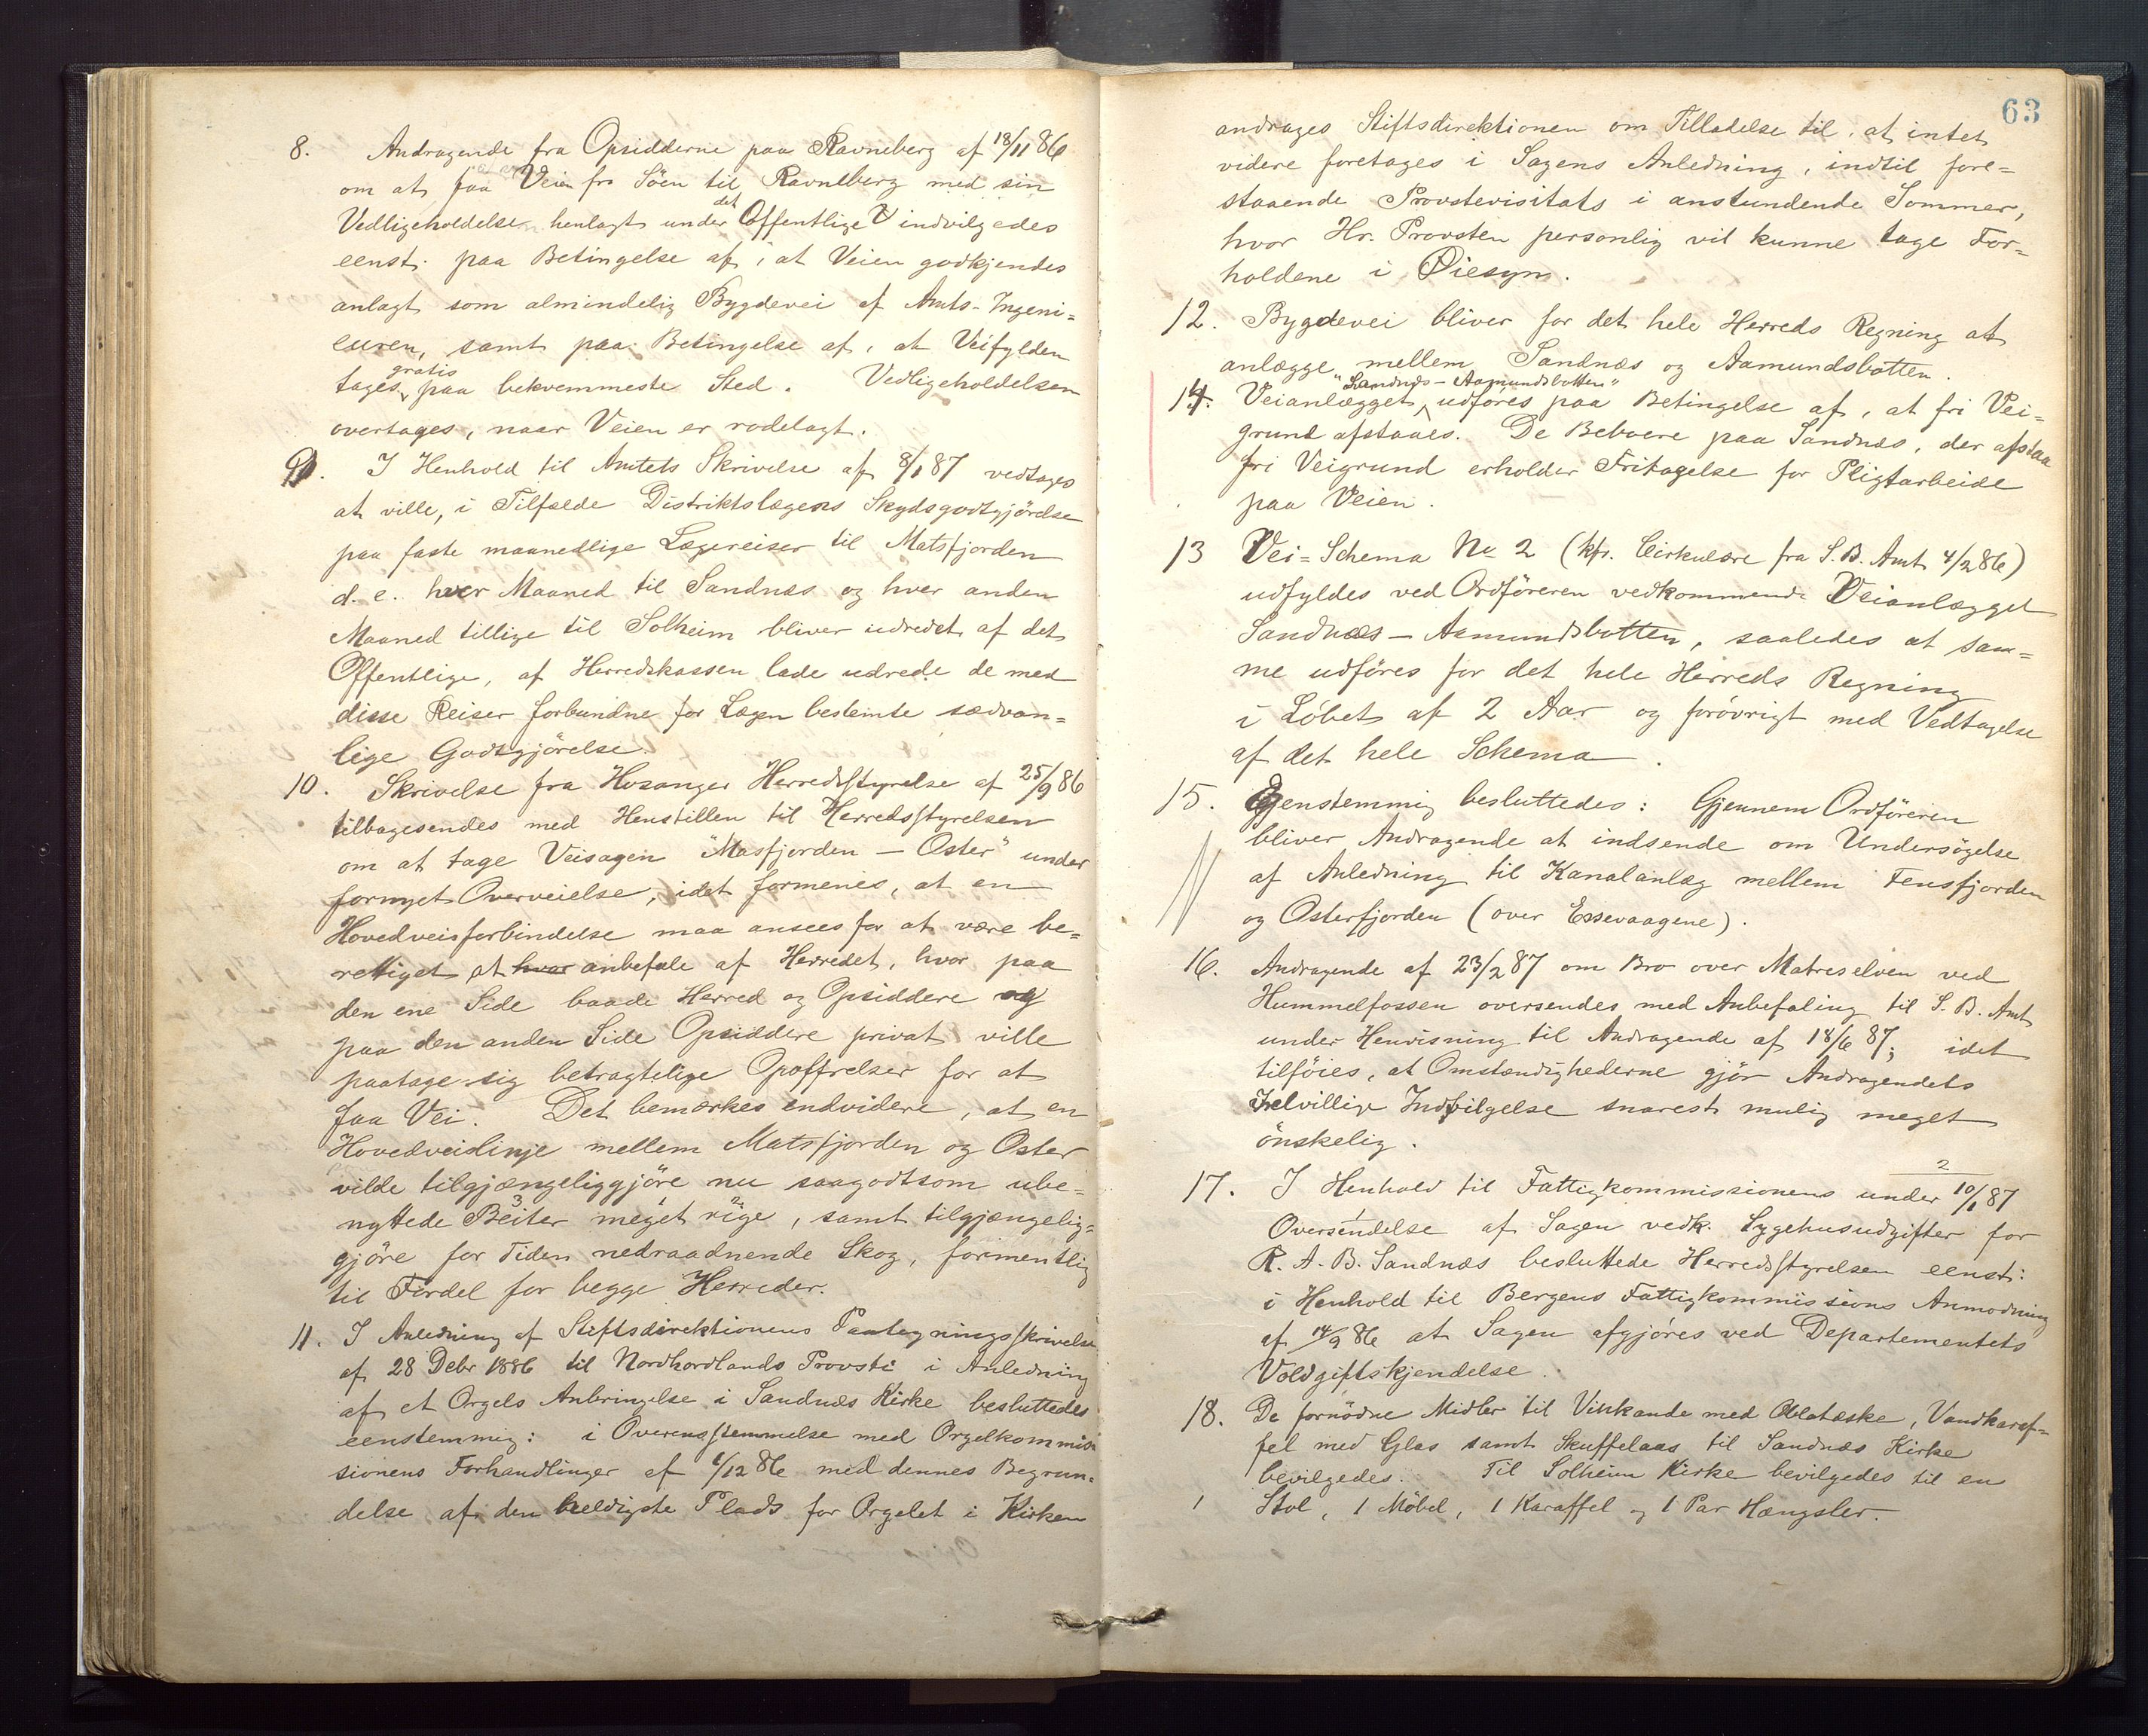 8. Andragende fra Opsidderne paa Ravneberg af 18/11 86
om at faa Veien fra Söen til Ravneberg med sin
Vedligeholdelse henlagt under det Offentlige indvilgedes
eenst. paa Betingelse af, at Veien godkjendes
anlagt som almindelig Bygdevei af Amts-Ingeni=
euren, samt paa Betingelse af, at Veifylden
tages gratis paa bekvemmeste Sted. Vedligeholdelsen
overtages, naar Veien er rodelagt.
9. I Henhold til Amtets Skrivelse af 8/1 87 vedtages
at ville, i Tilfælde Distriktslægens Skydsgodtgjörelse
paa faste maanedlige Lægereiser til Matsfjorden
d. e. hver Maaned til Sandnæs og hver anden
Maaned tillige til Solheim bliver udredet af det
Offentlige, af Herredskassen lade udrede de med
disse Reiser forbundne for Lægen bestemte sædvan=
lige Godtgjörelse.
10. Skrivelse fra Hosanger Herredsstyrelse af 25/9 86
tilbagesendes med Henstillen til Herredsstyrelsen
om at tage Veisagen "Masfjorden - Oster" under
fornyet Overveielse, idet formenes, at en
Hovedveisforbindelse maa ansees for at være be=
rettiget at hvor anbefale af Herredet, hvor paa
den ene Side baade Herred og Opsiddere og
paa den anden Side Opsiddere privat ville
paatage sig betragtelige Opoffrelser for at
faa Vei. Det bemærkes endvidere, at en
Hovedveislinje mellem Matsfjorden og Oster
vilde tilgjængeliggjöre nu saagodtsom ube=
nyttede Beiter meget rige, samt tilgjængelig=
gjöre for Tiden nedraadnende Skog, formentlig
til Fordel for begge Herreder.
11. I Anledning af Stiftsdirektionens Paategningsskrivelse
af 28 Debr 1886 til Nordhordlands Provsti i Anledning
af et Orgels Anbringelse i Sandnæs Kirke besluttedes
eenstemmig: i Overensstemmelse med Orgelkommis
sionens Forhandlinger af 6/12 86 med dennes Begrun=
delse af den heldigste Plads for Orgelet i Kirken
63
andrages Stiftsdirektionen om Tilladelse til, at intet
videre foretages i Sagens Anledning, indtil fore=
staaende Provstevisitats i anstundende Sommer,
hvor Hr. Provsten personlig vil kunne tage For=
holdene i Öiesyn.
12. Bygdevei bliver for det hele Herreds Regning at
anlægge mellem Sandnæs og Aamundsbotten.
14. Veianlægget "Sandnæs - Aamundsbotten" udföres paa Betingelse af, at fri Vei=
grund afstaaes. De Beboere paa Sandnæs, der afstaa
fri Veigrund erholder Fritagelse for Pligtarbeide
paa Veien.
13 Vei=Schema No 2 (kfr. Cirkulære fra S. B. Amt 4/2 86)
udfyldes ved Ordföreren vedkommende Veianlægget
Sandnæs - Aamundsbotten, saaledes at sam=
me udföres for det hele Herreds Regning
i Löbet af 2 Aar og forövrigt med Vedtagelse
af det hele Schema.
15. Eenstemmig besluttedes: Gjennem Ordföreren
bliver Andragende at indsende om Undersögelse
af Anledning til Kanalanlæg mellem Fensfjorden
og Osterfjorden (over Essevaagene).
16. Andragende af 23/2 87 om Bro over Matreselven ved
Hummelfossen oversendes med Anbefaling til S. B. Amt
under Henvisning til Andragende af 18/6 87; idet
tilföies, at Omstændighederne gjör Andragendets
velvillige Indvilgelse snarest mulig meget
önskelig.
2
17. I Henhold til Fattigkommissionens under 10/1 87
Oversendelse af Sagen vedk. Sygehusudgifter for
R. A. B. Sandnæs besluttede Herredsstyrelsen eenst:
i Henhold til Bergens Fattigkommissions Anmodning
af 14/9 86 at Sagen afgjöres ved Departementets
Voldgiftskjendelse.
18. De fornödne Midler til Vinkande med Oblatæske, Vandkaraf=
fel med Glas samt Skuffelaas til Sandnæs Kirke
bevilgedes. Til Solheim Kirke bevilgedes til en
Stol, 1 Möbel, 1 Karaffel og 1 Par Hængsler.